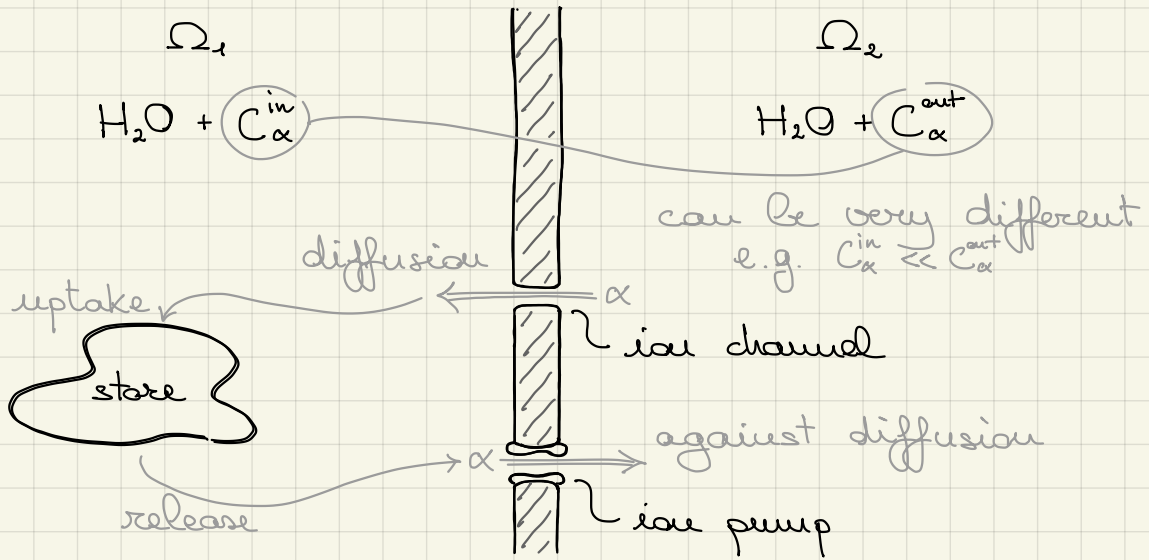 Ω₁
Ω₂
H₂O + C_α^in
H₂O + C_α^out
can be very different
e.g. C_α^in << C_α^out
diffusion
uptake
α
ion channel
store
against diffusion
α
release
ion pump